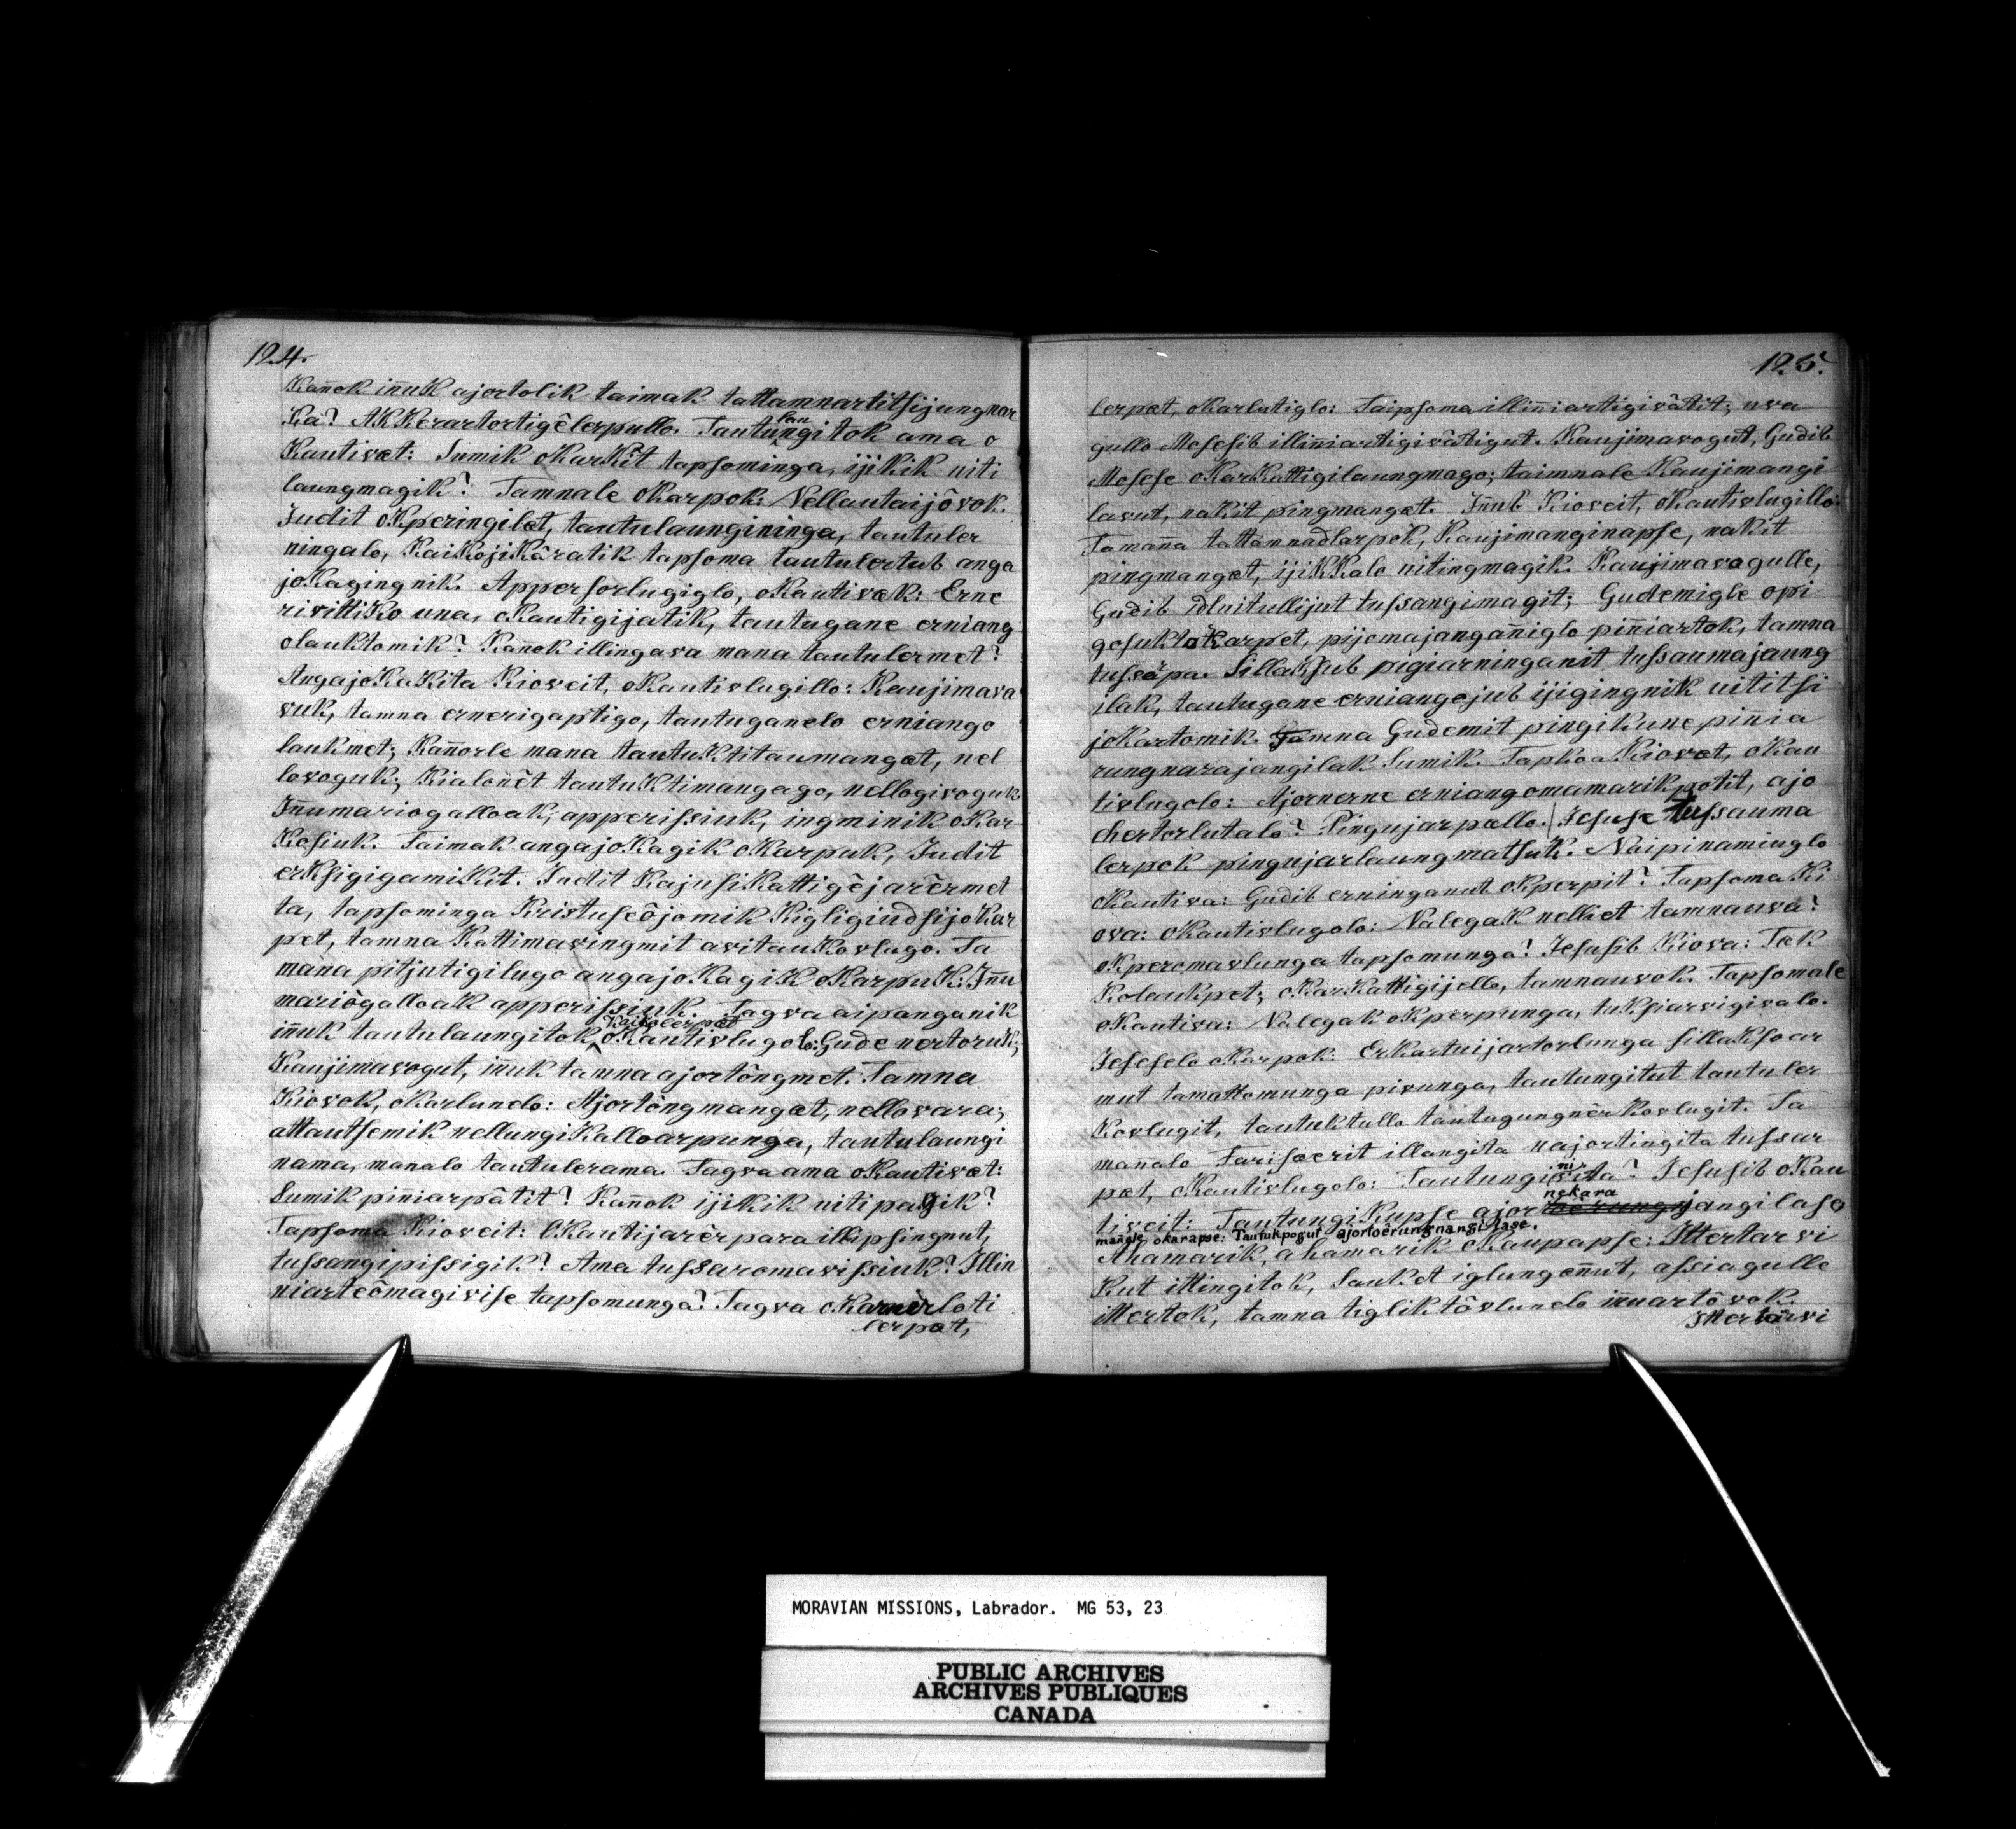 124.
Kañok iñuk ajortolik taimak tattamnartitsijungnar
Ka? AKKerartortigêlerpullo. Tautulaungitok ama o
Kautivæt: Sumik oKarKêt tapsominga, ijikik uiti
laungmagik? Tamnale oKarpok: Nellautaijôvok.
Judit oKperingilæt, tautulaungininga, tautuler
ningalo, KaiKojiKâratik tapsoma tautulertub anga
joKagingnik. Appersorlugiglo, oKautivæk: Erne
rivittiKo una, oKautigijatik, tautugane erniang
olauktomik? Kañok illingava mana tautulermet?
AngajoKaKita Kioveit, oKautivlugillo: Kaujimava
vuk, tamna ernerigaptigo, tautuganelo erniango
laukmet; Kañorle mana tautuKtitaumangæt, nel
lovoguk; Kialonêt tautuKtimangago, nellogivoguk
Iñumariogalloak, apperissiuk, ingminik oKar
Kosiuk. Taimak angajoKagik oKarpuk, Judit
erKsigigamiKit. Judit KajusiKattigêjarêrmet
ta, tapsominga Kristuseôjomik Kigligiudsijokar
pet, tamna Kattimavingmit avitauKovlugo. Ta
mâna pitjutigilugo angajoKagiK oKarpuK: Iñu
mariôgalloak apperissiuk. Tagva aipanganik
iñuk tautulaungitok Kaikolerpæt oKautivlugolo: Gude nertoruk;
Kaujimavogut, iñuk tamna ajortôngmet. Tamna
Kiovok, oKarlunelo: Ajortôngmangæt, nellovara;
attautsemik nellungiKalloarpunga, tautulaungi
nama, manalo tautulerama. Tagva ama oKautivæt:
Sumik piñiarpâtit? Kañok ijikik uitipagik?
Tapsoma Kioveit: OKautijarêrpara illipsingnut,
tussangipissigik? Ama tussaromavissiuk? Illin
niarteômagivise tapsomunga? Tagva oKarnêrloti
lerpæt,
125.
lerpæt, oKarlutiglo: Taipsoma illiñiartigivâtit; uva
gullo Mosesib illiñiartigivâtigut. Kaujimavogut, Gudib
Mosese oKarKattigilaungmago; taimnale Kaujimangi
lavut, nakit pingmangæt. Iñub Kioveit, oKautivlugillo:
Tamaña tattamnadlarpok, Kaujimanginapse, nakit
pingmangæt, ijiKKalo uitingmagik. Kaujimavogulle,
Gudib idluitullijut tussangimagit; Gudemigle opi
gosuktoKarpet, pijomajangañiglo piñiartok, tamna
tussarpa. SillaKsub pigiarninganit tussaumajaung
ilak, tautugane erniangojub ijigingnik uititsi
joKartomik. Tamna Gudemit pingikune piñia
rungnarajangilak Sumik. Tapkoa Kiovæt, oKau
tivlugolo: Ajornerne erniangomamarikpotit, ajo
Kertorlutalo? Pingujarpællo. Jesuse tussauma
lerpok pingujarlaungmatsuk. Naipinamiuglo
oKautiva: Gudib erninganut oKperpit? Tapsoma Ki
ova: oKautivlugolo: NalegaK nelliet tamnauva?
oKperomavlunga tapsomunga? Jesusib Kiova: TaK
Kolaukpet; oKarKattigijello, tamnauvok. Tapsomale
oKautiva: NalegaK oKperpunga, tukfiarvigivalo.
Jesuselo oKarpok: ErKartuijartorlunga sillaksoar
mut tamattomunga pivunga, tautungitut tautuler
Kovlugit, tautuktullo tautugungnêrkovlugit. Ta
mañalo Farisæerit illangita najortingita tussar
pæt, oKautivlugolo: Tautunginivita? Jesusib oKau
tiveit: TautungiKupse ajornekarajangilase
maagle, okarapse: Tautukpogut ajorloêrungnangilase.
Ahamarik, ahamarik oKaupapse: Itterlarvi
kut ittingitok, SauKet iglungoñut, assiagulle
ittertok, tamna tigliktôvlunelo iñuartôvok.
Itterlarvi
MORAVIAN MISSIONS, Labrador. MG 53, 23
PUBLIC ARCHIVES
ARCHIVES PUBLIQUES
CANADA